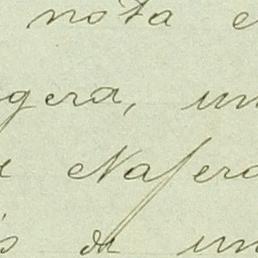 nota e
gera, un
Nasera
s de un